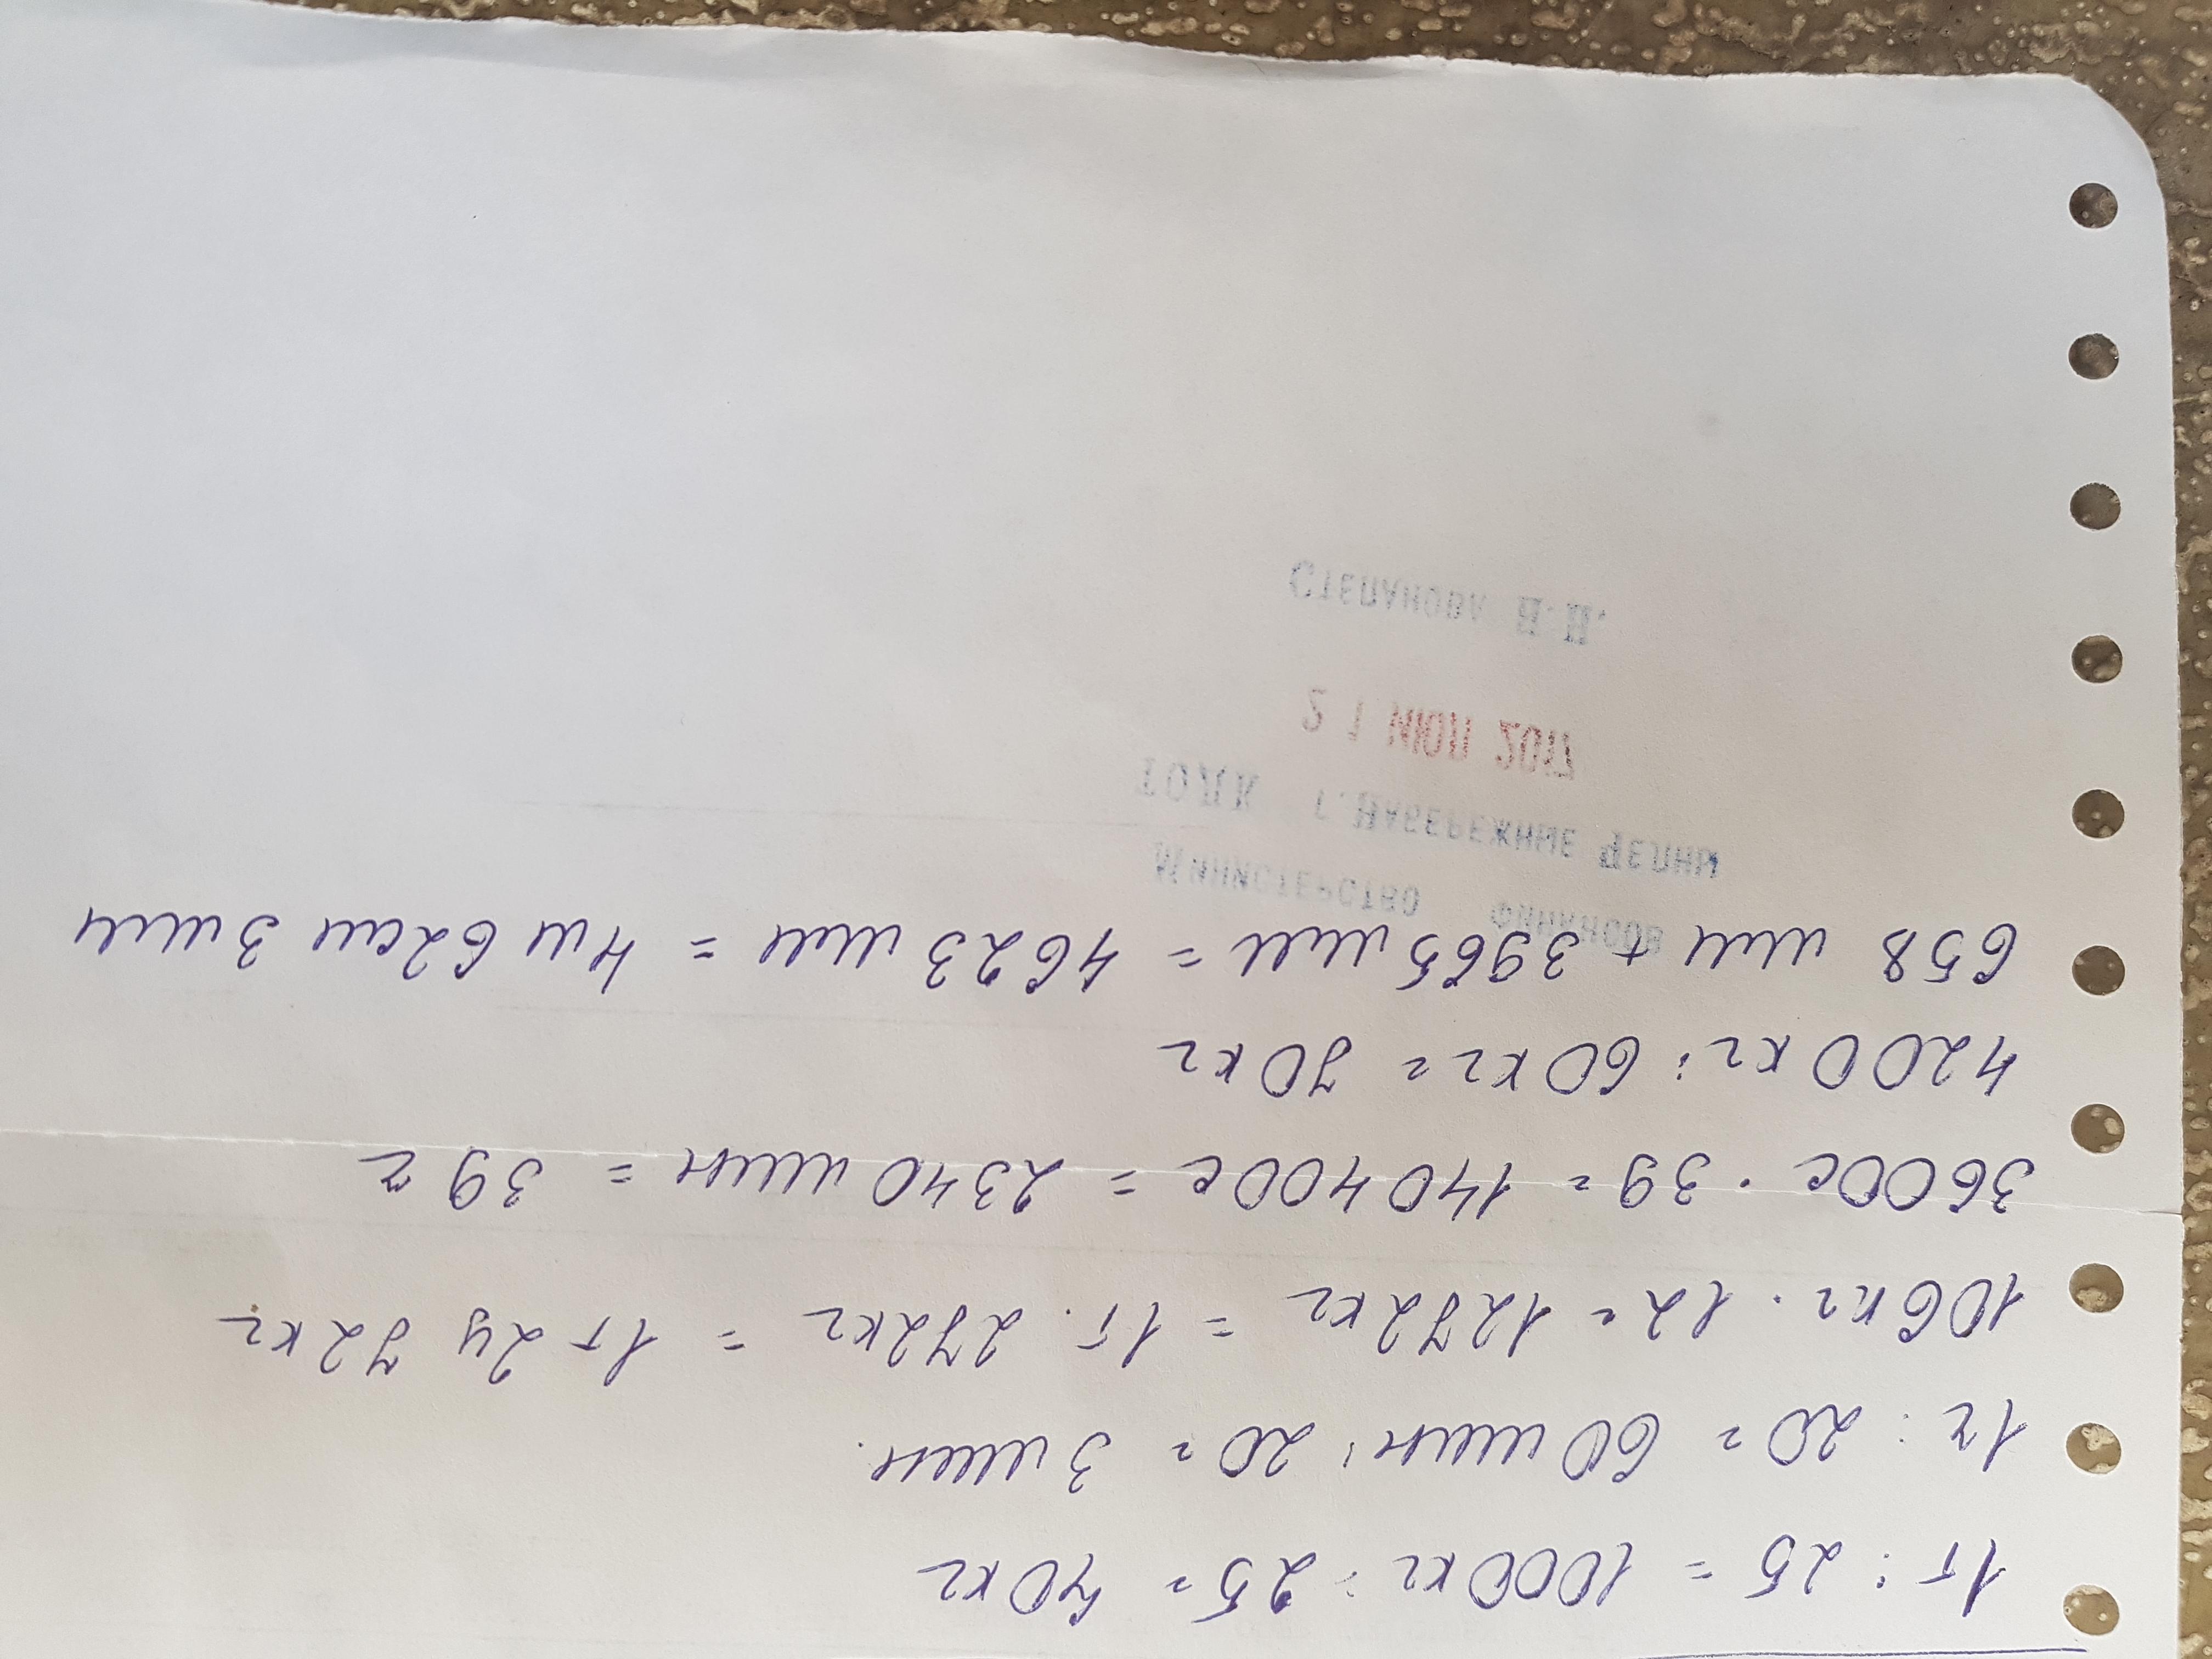 1т : 25 = 1000кг : 25 = 40кг
1ч : 20 = 60мин : 20 = 3мин.
106кг · 12 = 1272кг = 1т. 272кг = 1т 2ц 72кг
3600с · 39 = 140400с = 2340мин = 39ч
4200кг : 60кг = 70кг
658 мм + 3965мм = 4623мм = 4м 62см 3мм
Министерство финансов
ГОДК г. Набережные Челны
21 ИЮЛ 2017
Степанова Н.Н.